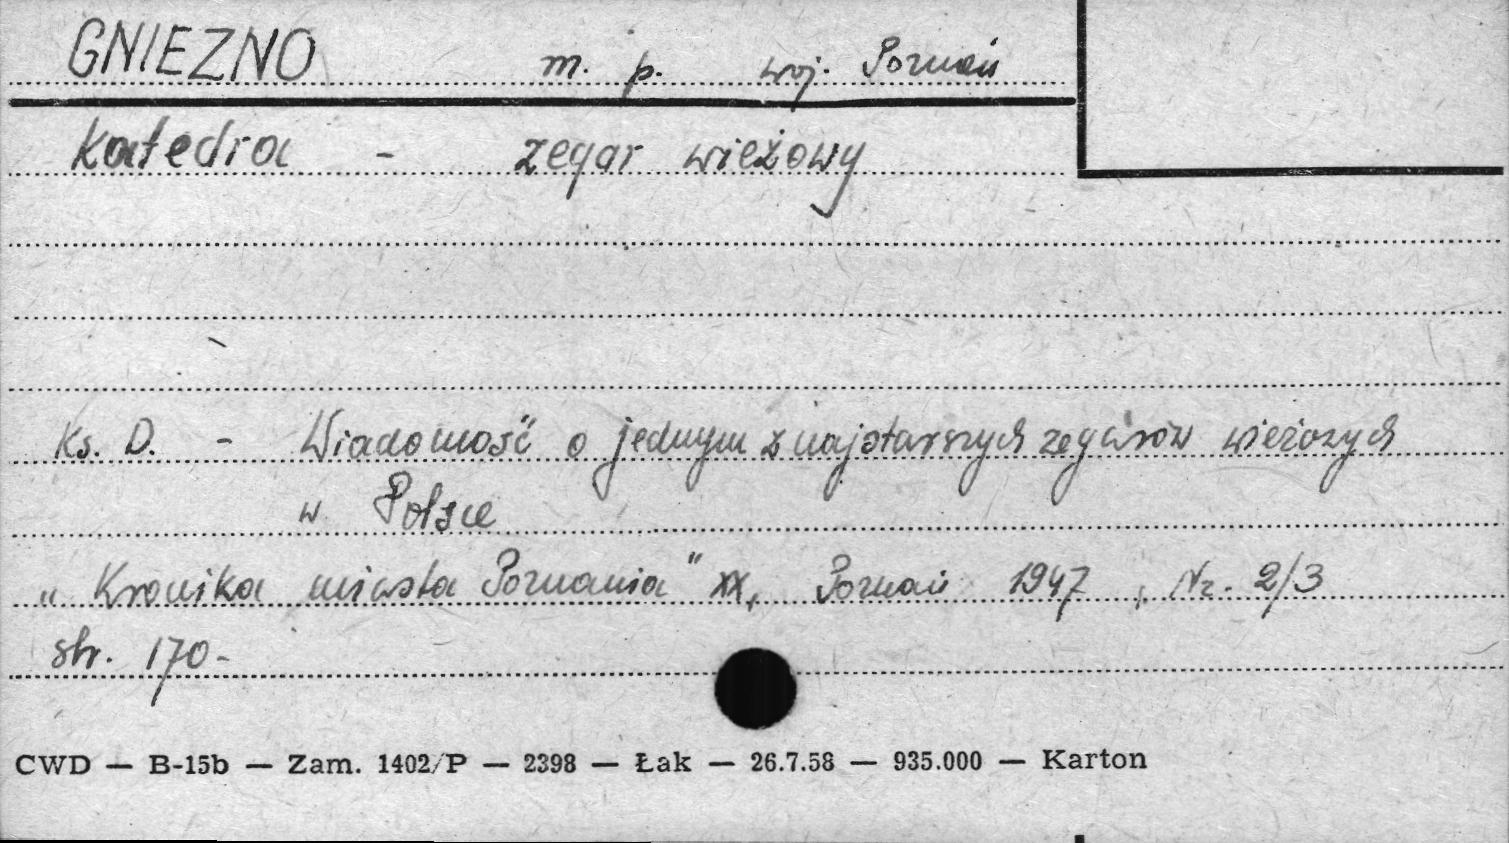 GNIEZNO m. p. woj. Poznań
Katedra - zegar wieżowy
Ks. D. - Wiadomość o jednym z najstarszych zegarów wieżozych
w Polsce
„Kronika miasta Poznania" XX, Poznań 1947, Nr. 2/3
str. 170-
CWD — B-15b — Zam. 1402/P — 2398 — Łak — 26.7.58 — 935.000 — Karton